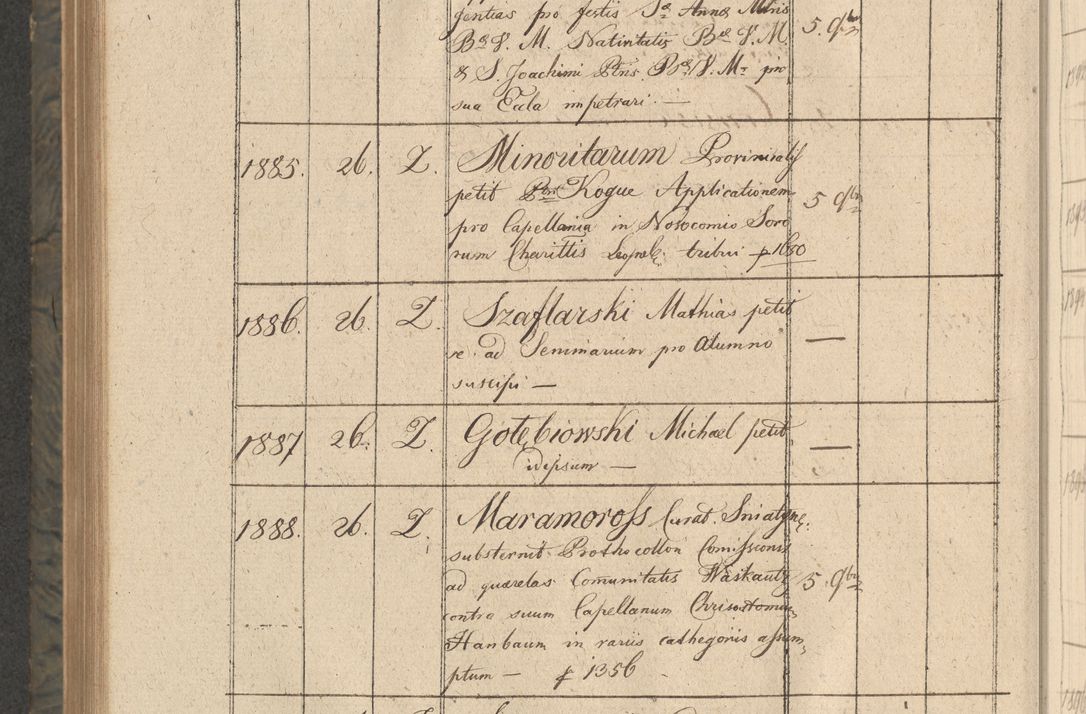 gentias pro festis Sæ Annæ Mtris
Bæ V. M. Nativitatis Bæ V. M. 5. 9br
& S. Joachimi Ptris Bæ V. Mæ pro
sua Ecla impetrari. —
1885. 26. Z. Minoritarum Provincialis
petit Kogue Applicationem 5 9br
pro Capellania in Nosocomio Soro
rum Charittis Leopol: tribui f 1650
1886. 26. Z. Szaflarski Mathias petit
se ad Seminarium pro Alumno —
suscipi —
1887 26. Z. Gołębiowski Michael petit —
idipsum —
1888. 26. Z. Maramoross Curat. Sniatyne:
substernit Prothocollon Comissionis
ad querelas Comunitatis Waskautz 5. 9br
contra suum Capellanum Chrisostomum
Hanbaum in variis cathegoriis assum
ptum — f 1356